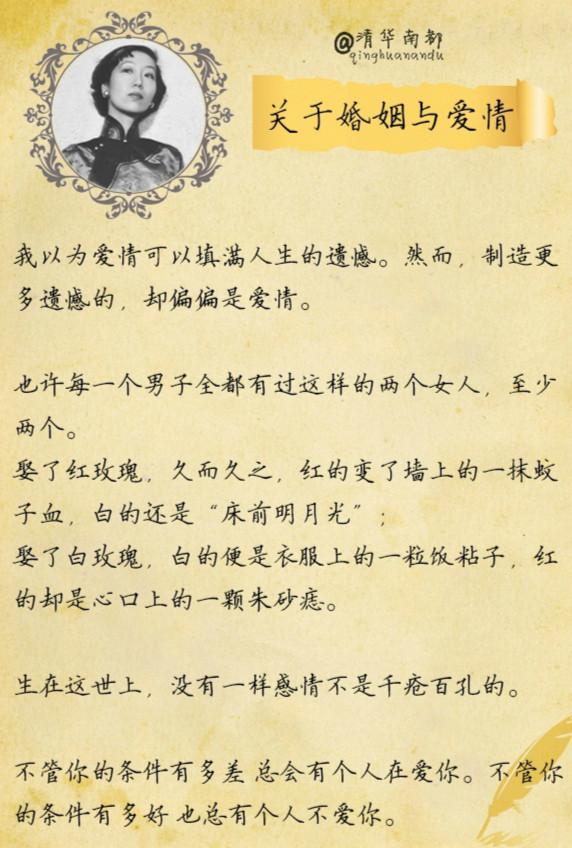 @清华南都
qinghuanandu
关于婚姻与爱情
我以为爱情可以填满人生的遗憾。然而，制造更
多遗憾的，却偏偏是爱情。
也许每一个男子全都有过这样的两个女人，至少
两个。
娶了红玫瑰，久而久之，红的变了墙上的一抹蚊
子血，白的还是“床前明月光”；
娶了白玫瑰，白的便是衣服上的一粒饭粘子，红
的却是心口上的一颗朱砂痣。
生在这世上，没有一样感情不是千疮百孔的。
不管你的条件有多差 总会有个人在爱你。不管你
的条件有多好 也总有个人不爱你。